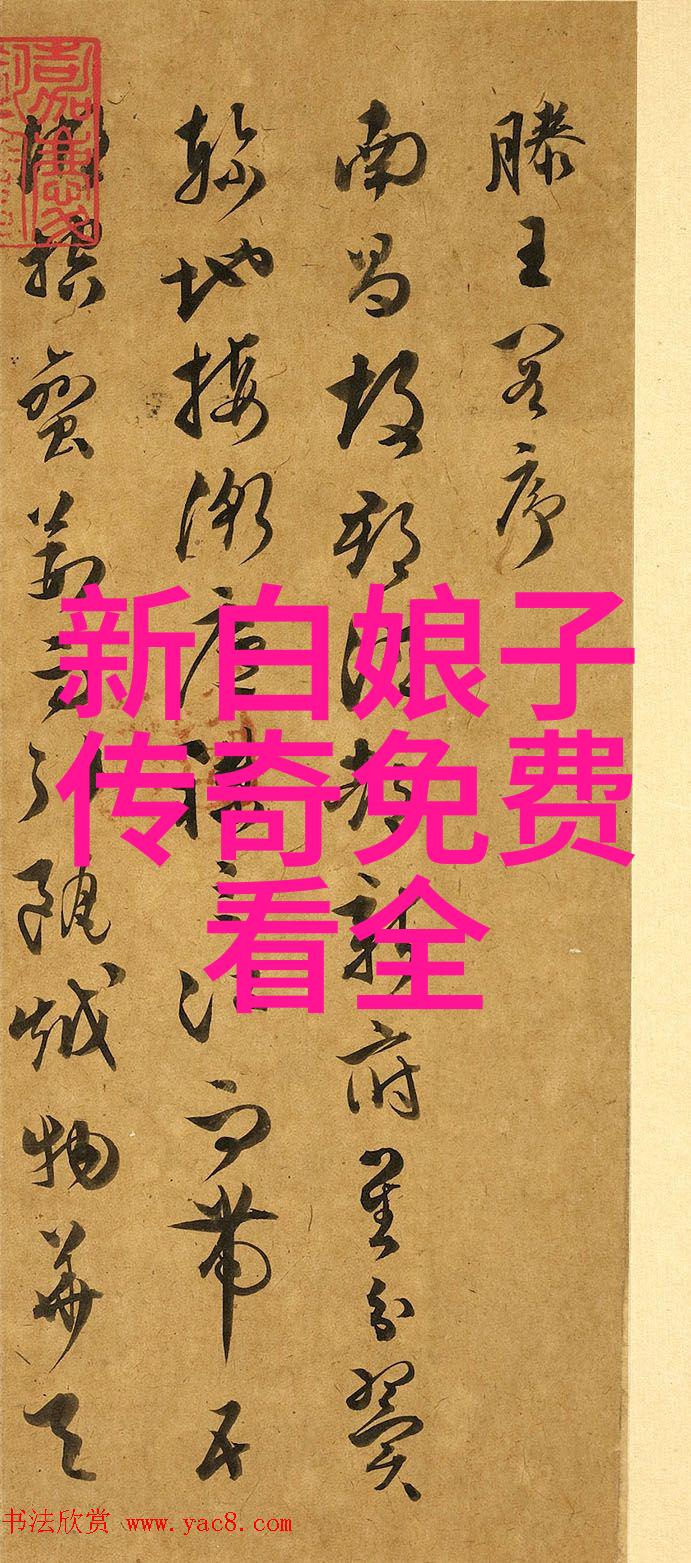 滕王閣序
南昌故郡洪都新府星分翼
軫地接衡廬襟三江而帶五
湖控蠻荊而引甌越物華天
新白娘子
传奇免费
看全
书法欣赏 www.yac8.com